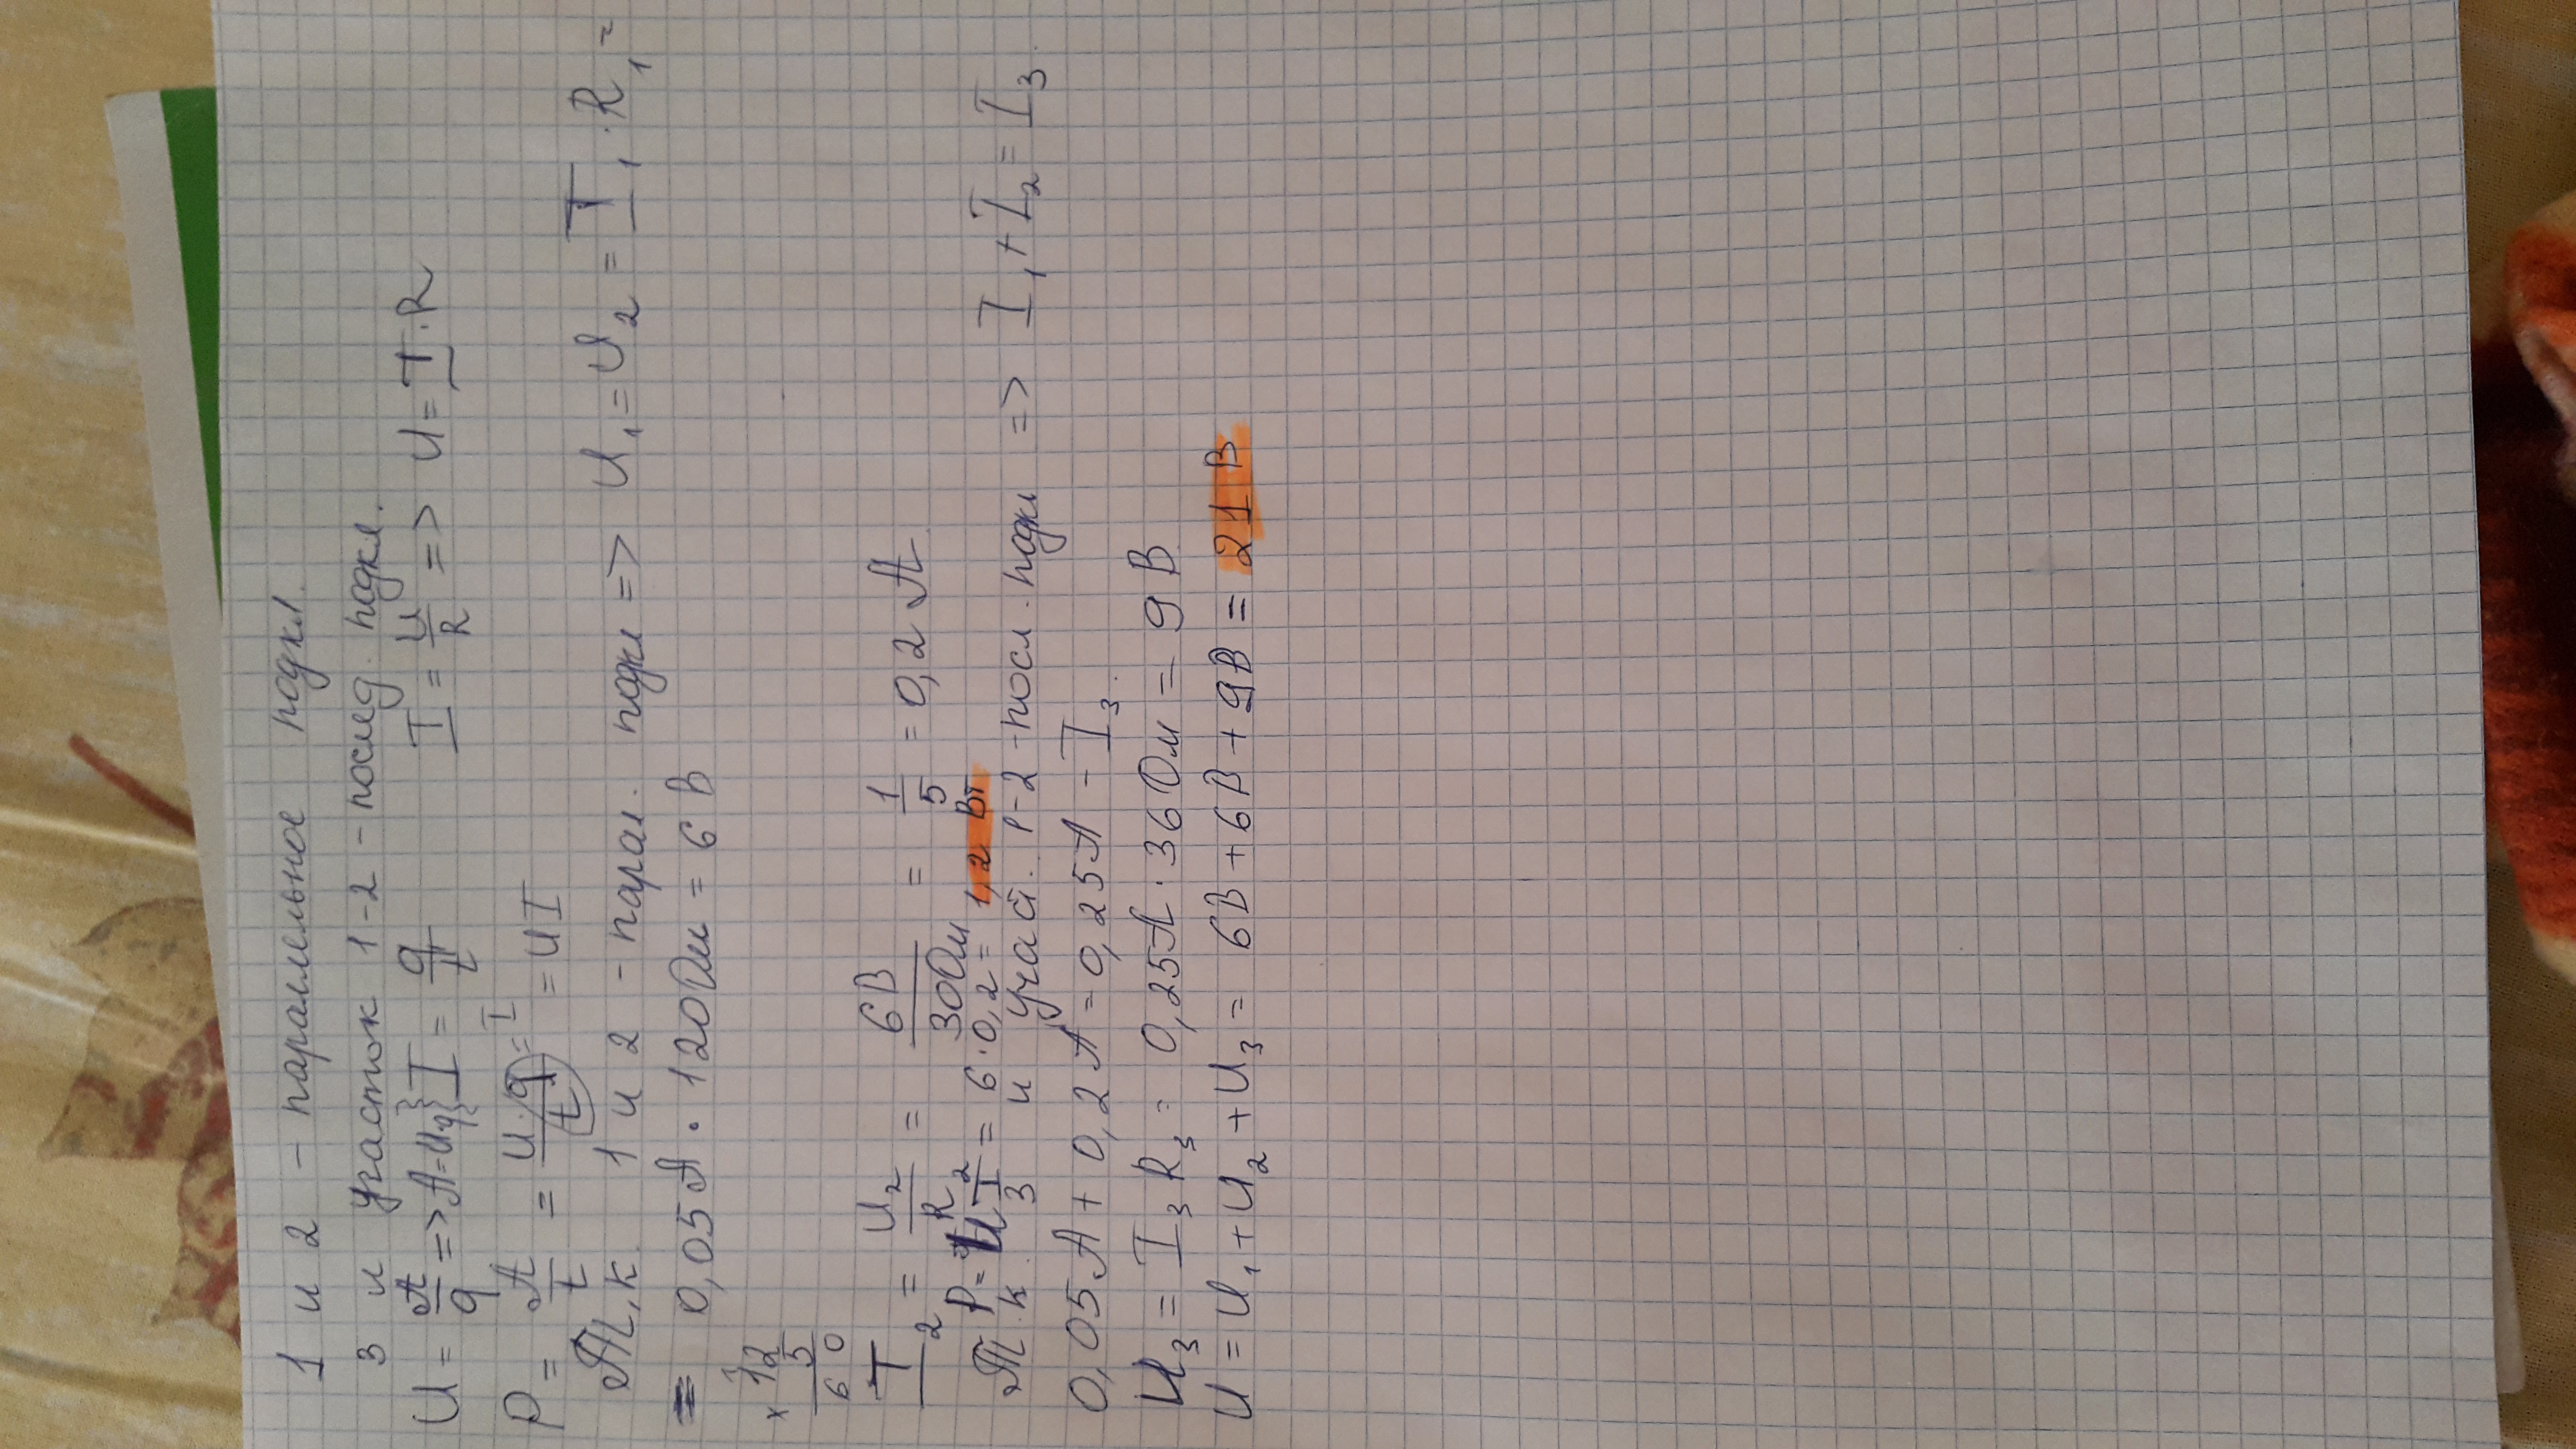 1 и 2 - параллельное подкл.
3 и участок 1-2 - послед. подкл.
U = A/q => A=Uq} I = q/t I = U/R => U = I·R
P = A/t = U·q/t = I = UI
Т.к. 1 и 2 - парал. подкл => U₁=U₂ = I₁·R₁ =
= 0,05А · 120Ом = 6 В
× 12
5
6 0
I₂ = U₂/R = 6В/30Ом = 1/5 = 0,2 А
P= UI₂ = 6·0,2= 1,2 Вт
Т.к. 3 и 1-2 - посл. подкл => I₁+I₂ = I₃.
0,05А + 0,2А = 0,25А - I₃.
U₃ = I₃R₃= 0,25А · 36Ом = 9 В
U = U₁+U₂+U₃ = 6В+6В+9В = 21 В